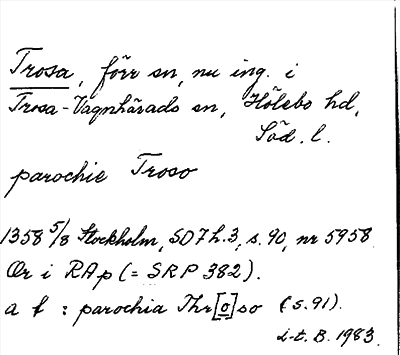 Trosa, förr sn, nu ing. i
Trosa-Vagnhärads sn, Hölebo hd,
Söd. l.
parochie Troso
1358 5/8 Stockholm, SD 7 h. 3, s. 90, nr 5958
Or i RAp (= SRP 382).
a f : parochia Thr[o]so (s. 91).
i-t. B. 1983.